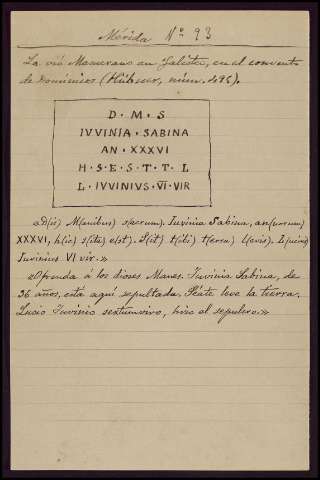 Mérida Nº 93
La vió Manerano en Jalisten, en el convento
de Dominicos (Hübner, núm. 495).
D · M · S
IVVINIA · SABINA
AN · XXXVI
H · S · E · S · T · T · L
L · IVVINIVS · VI VIR
«D(is) M(anibus) s(acrum). Iuvinia Sabina, an(norum)
XXXVI, h(ic) s(ita) e(st). S(it) t(ibi) t(erra) l(evis). L(ucius)
Iuvinius VI vir.»
«Ofrenda á los dioses Manes. Iuvinia Sabina, de
36 años, está aquí sepultada. Séate leve la tierra.
Lucio Iuvinio sextumviro, hizo el sepulcro.»